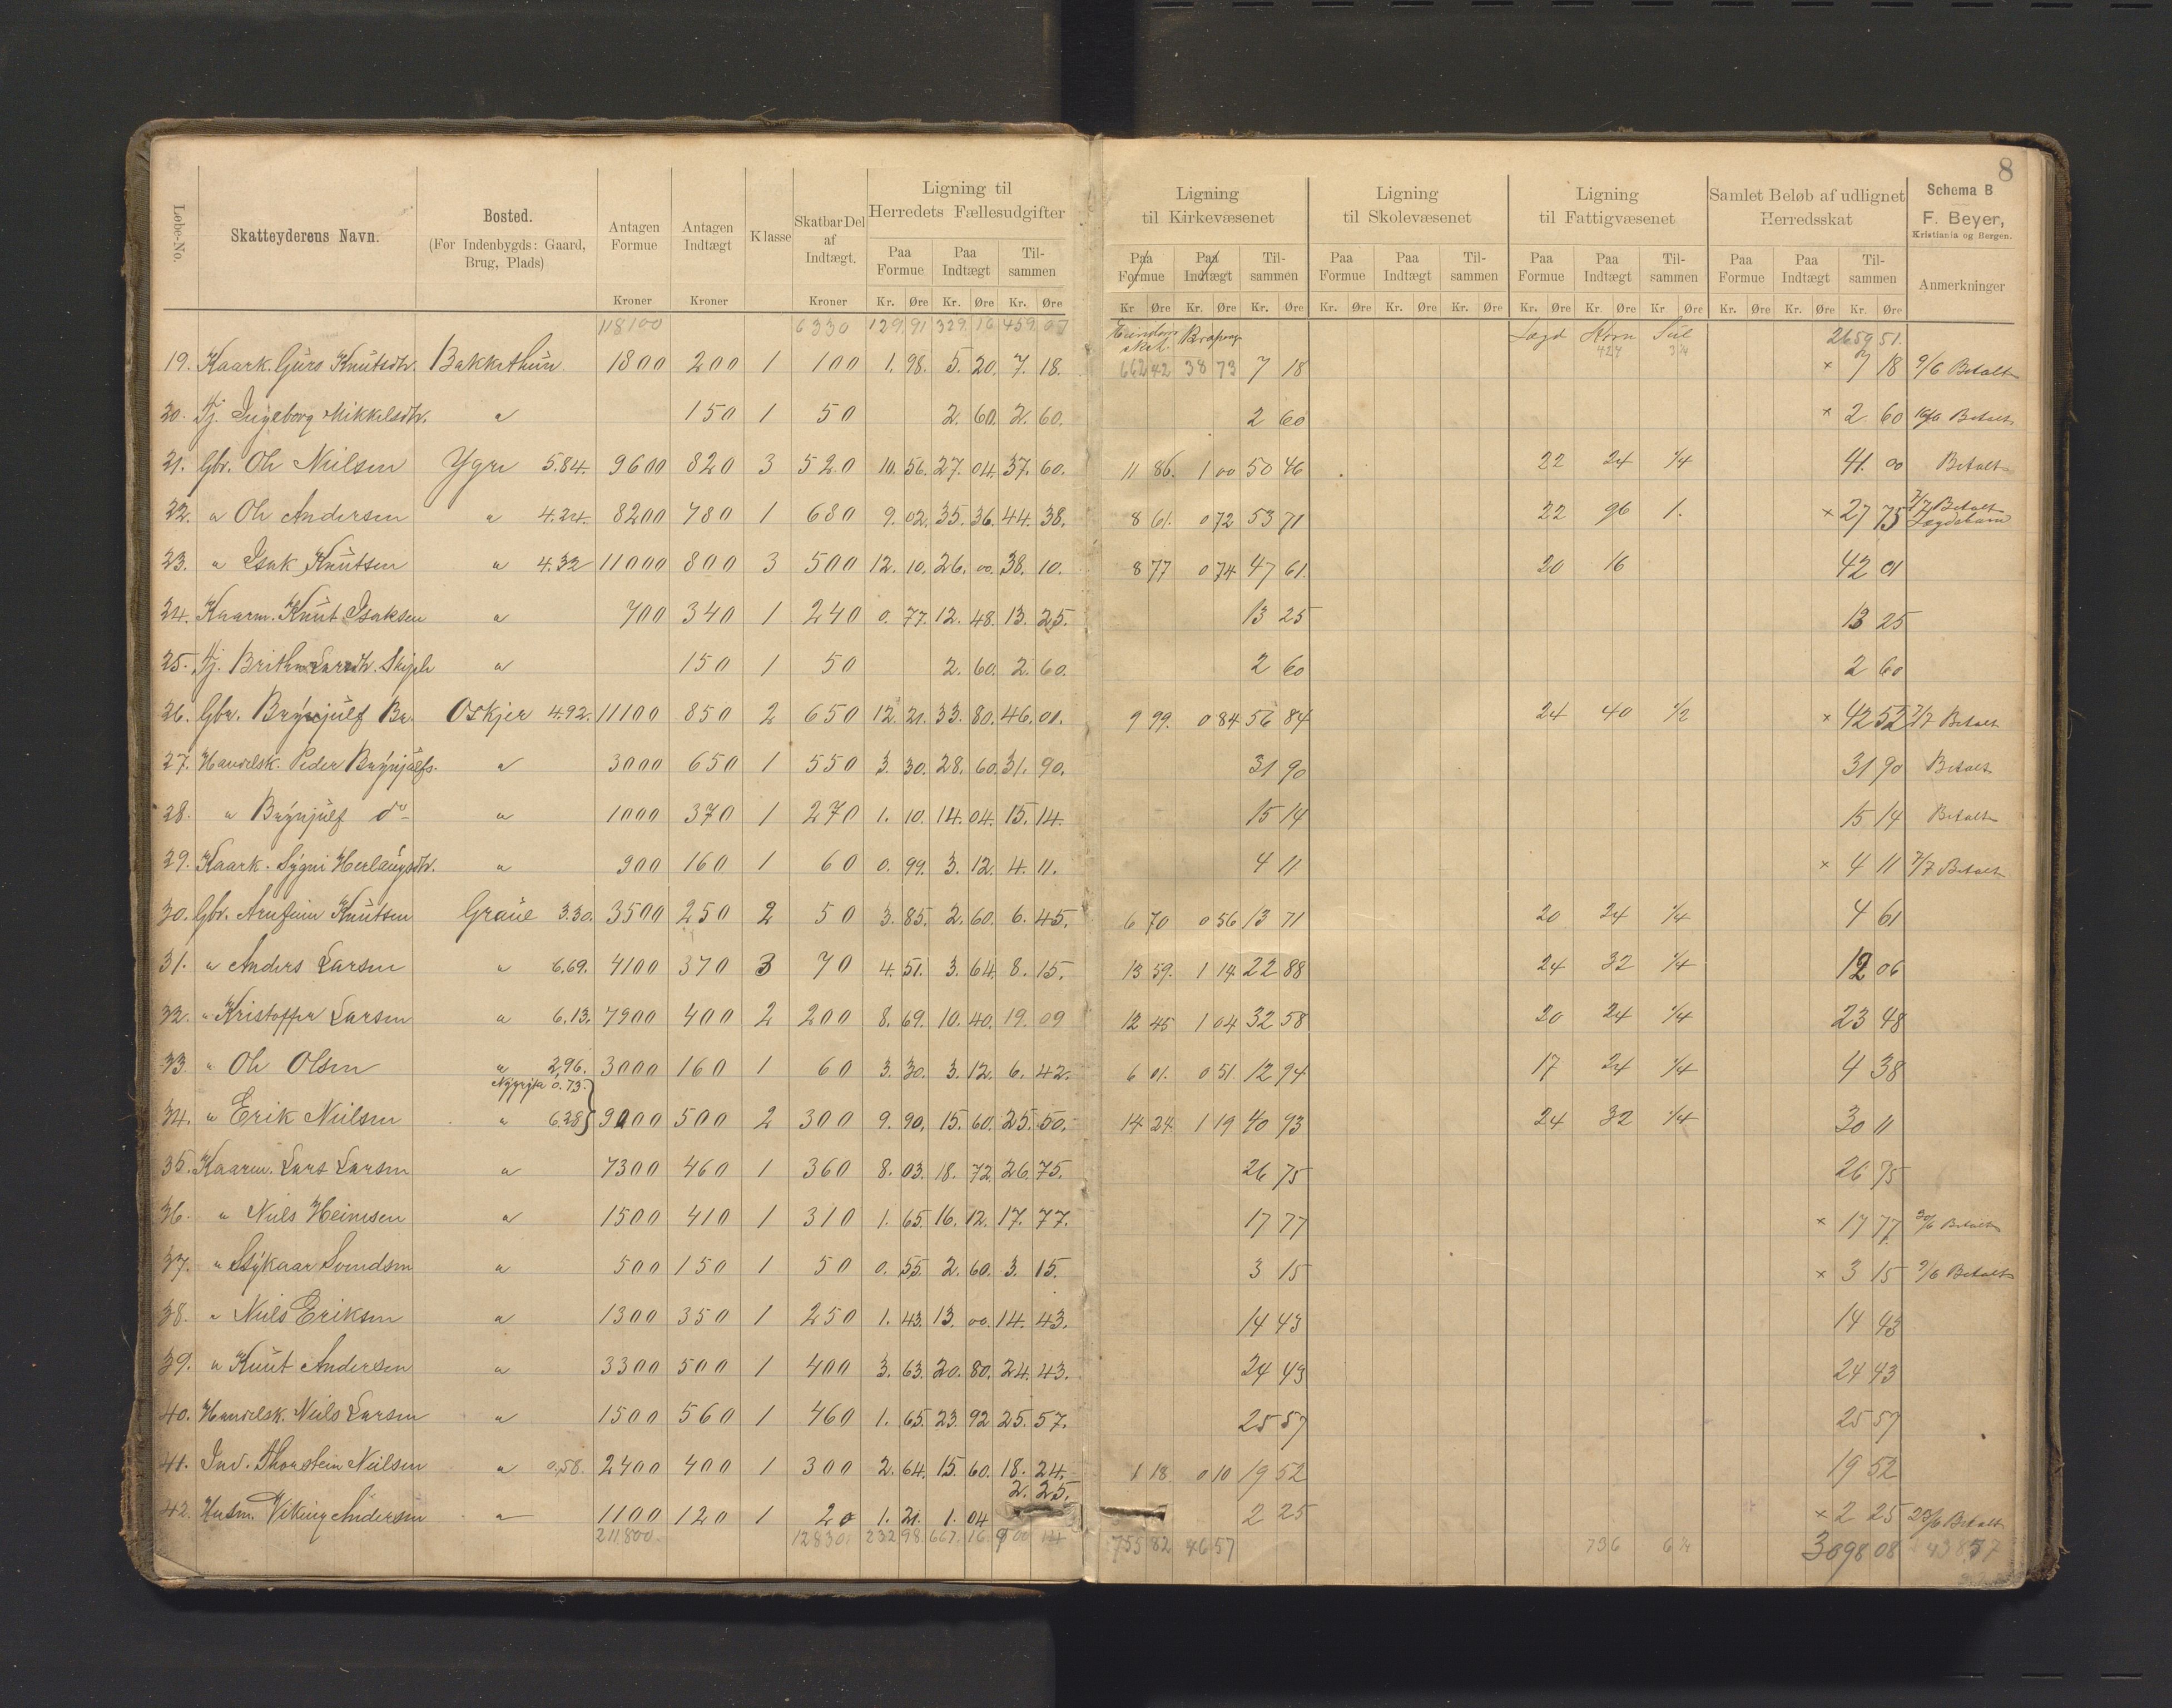 8
Løbe-No. Skatteyderens Navn. Bosted. (For Indenbygds: Gaard, Brug, Plads) Antagen Formue Kroner Antagen Indtægt Kroner Klasse Skatbar Del af Indtægt. Kroner Ligning til Herredets Fællesudgifter Paa Formue Kr. Øre Paa Indtægt Kr. Øre Tilsammen Kr. Øre
Ligning til Kirkevæsenet Paa Formue Kr Øre Paa Indtægt Kr. Øre Tilsammen Kr. Øre Ligning til Skolevæsenet Paa Formue Kr. Øre Paa Indtægt Kr. Øre Tilsammen Kr. Øre Ligning til Fattigvæsenet Paa Formue Kr. Øre Paa Indtægt Kr Øre Tilsammen Kr Øre Samlet Beløb af udlignet Herredsskat Paa Formue Kr. Øre Paa Indtægt Kr. Øre Tilsammen Kr. Øre Schema B F. Beyer, Kristiania og Bergen. Anmerkninger
118100 6330 129.91 329.16 459.07 Lægd Korn 2659 51.
19. Kaark. Gúro Knútsdtr. Bakkethun 1800 200 1 100 1. 98. 5. 20. 7. 18. 662 42 38 73 7 18 424 3 1/4 × 7 18 9/6 Betalt
20. Tj. Ingeborg Mikkelsdtr. " 150 1 50 2. 60. 2. 60. 2 60 × 2 60 Betalt
21. Gbr. Ole Nielsen Ygre 5.84. 9600 820 3 520 10. 56. 27. 04. 37. 60. 11 86. 1 00 50 46 22 24 1/4 41. 00 Betalt
22. " Ole Andersen " 4.24. 8200 780 1 680 9. 02. 35. 36. 44. 38. 8 61. 0 72 53 71 22 96 1. × 27 75 7/7 Betalt Lægdebarn
23. " Isak Knútsen " 4.32 11000 800 3 500 12. 10. 26. 00. 38. 10. 8 77 0 74 47 61. 20 16 42 01
24. Kaarm. Knút Isaksen " 700 340 1 240 0. 77. 12. 48. 13. 25. 13 25 13 25
25. Tj. Brithe Larsdtr. " 150 1 50 2. 60. 2. 60. 2 60 2 60
26. Gbr. Brynjúlf Br. Oskjer 4.92. 11100 850 2 650 12. 21. 33. 80. 46. 01. 9 99. 0 84 56 84 24 40 1/2 × 42 52 7/7 Betalt
27. Handelsk. Peder Brynjúlfs. " 3000 650 1 550 3. 30. 28. 60. 31. 90. 31 90 31 90 Betalt
28. " Brynjúlf do " 1000 370 1 270 1. 10. 14. 04. 15. 14. 15 14 15 14 Betalt
29. Kaark. Sygni Herlaúgsdtr. " 900 160 1 60 0. 99. 3. 12. 4. 11. 4 11 × 4 11 7/7 Betalt
30. Gbr. Arnfinn Knútsen Graúe 3.30. 3500 250 2 50 3. 85. 2. 60. 6. 45. 6 70 0 56 13 71 20 24 1/4 4 61
31. " Anders Larsen " 6.69. 4100 370 3 70 4. 51. 3. 64. 8. 15. 13 59. 1 14 22 88 24 32 1/4 12 06
32. " Kristoffer Larsen " 6.13. 7900 400 2 200 8. 69. 10. 40. 19. 09 12 45 1 04 32 58 20 24 1/4 23 48
33. " Ole Olsen " 2.96. 3000 160 1 60 3. 30. 3. 12. 6. 42. 6 01. 0 51. 12 94 17 24 1/4 4 38
0.73.
34. " Erik Nielsen " 6.28 9000 500 2 300 9. 90. 15. 60. 25. 50. 14 24. 1 19 40 93 24 32 1/4 30 11
35. Kaarm. Lars Larsen " 7300 460 1 360 8. 03. 18. 72. 26. 75. 26 75 26 75
36. " Niels Heimsen " 1500 410 1 310 1. 65. 16. 12. 17. 77. 17 77 × 17 77 30/6 Betalt
37. " Stykaar Svendsen " 500 150 1 50 0. 55. 2. 60. 3. 15. 3 15 × 3 15 9/6 Betalt
38. " Niels Eriksen " 1300 350 1 250 1. 43. 13. 00. 14. 43. 14 43 14 43
39. " Knút Andersen " 3300 500 1 400 3. 63. 20. 80. 24. 43. 24 43 24 43
40. Handelsk. Niels Larsen " 1500 560 1 460 1. 65. 23. 92 25. 57. 25 57 25 57
41. Ind. Thorstein Nielsen " 0,58. 2400 400 1 300 2. 64. 15. 60. 18. 24. 1 18 0 10 19 52 19 52
2. 25.
42. Husm. Viking Andersen " 1100 120 1 20 1. 21. 1. 04 2 25 × 2 25 23/6 Betalt
211.800. 12830. 232 98. 667. 16. 900 14 755 82 46 57 736 6 1/4 3098 08 438 57